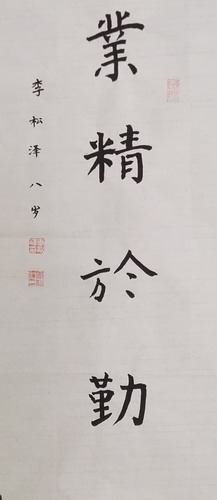 業精於勤
李松泽八岁